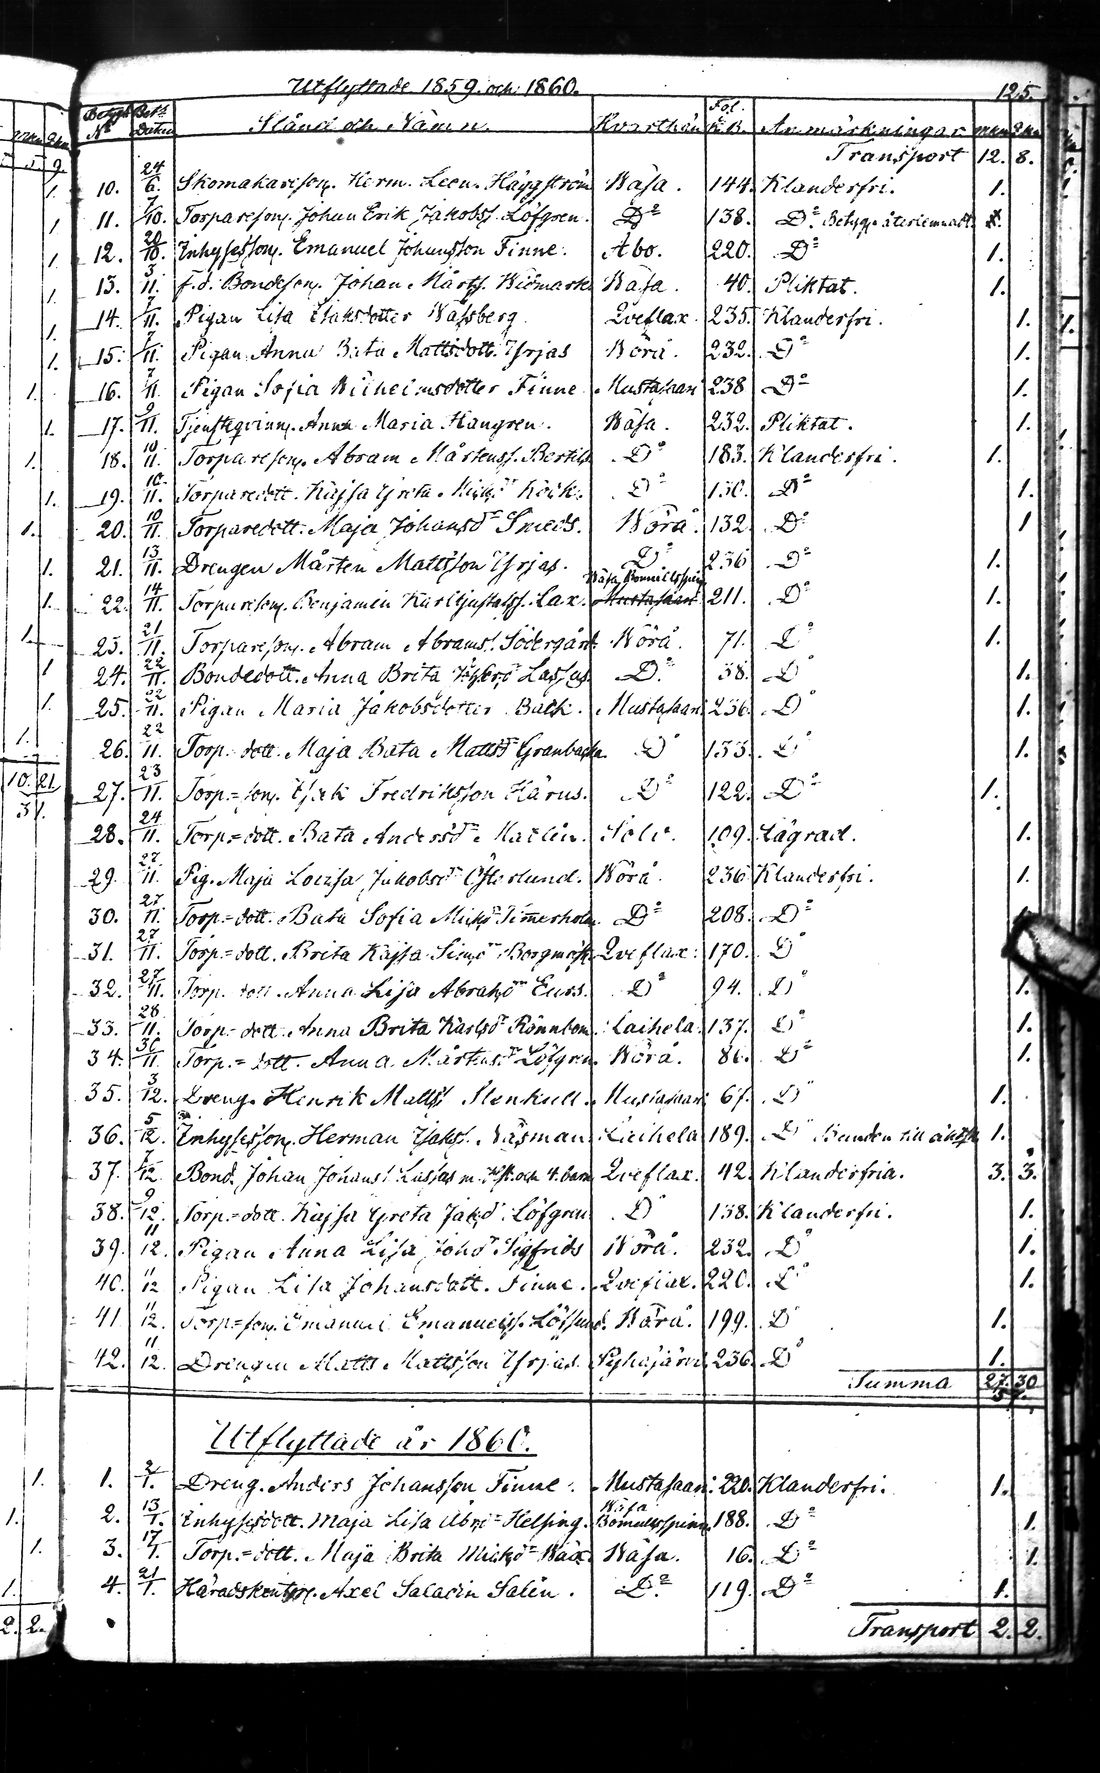 Utflyttade 1859. och 1860. 125.
Betygs No Bets Datum Stånd och Namn. Hvarthän Fol. K.B. Anmärkningar mkn qkn
Transport 12. 8.
10. 24/6. Skomakareson. Herm. Leon. Häggström Wasa. 144. Klanderfri. 1.
11. 7/10. Torpareson. Johan Erik Jakobss. Löfgren. Do 138. Do. Betyg återlemnadt. 1.
12. 20/10. Inhysesson. Emanuel Johansson Finne. Åbo. 220. Do 1.
13. 3/11. f.d. Bondeson. Johan Mårtss. Widmark Wasa. 40. Pliktat. 1.
14. 7/11. Pigan Lisa Isaksdotter Wassberg. Qveflax. 235. Klanderfri. 1.
15. 7/11. Pigan Anna Bata Mattsdott. Yrjas Wörå. 232. Do 1.
16. 7/11. Pigan Sofia Wilhelmsdotter Finne. Mustasaari 238 Do 1.
17. 9/11. Tjensteqvinn. Anna Maria Hangren. Wasa. 232. Pliktat. 1.
18. 10/11. Torpareson. Abram Mårtenss. Bertils Do 183. Klanderfri. 1.
19. 10/11. Torparedott. Kajsa Greta Mickd. Köck. Do 130. Do 1.
20. 10/11. Torparedott. Maja Johansdr Smeds. Wörå. 132. Do 1
21. 13/11. Drengen Mårten Mattsson Yrjas. Do 236 Do 1.
22. 14/11. Torpareson. Benjamin Karl Gustafss. Lax. Wasa Bomullsspin. Mustasaari 211. Do 1.
23. 21/11. Torpareson. Abram Abramss. Södergård. Wörå. 71. Do 1.
24. 22/11. Bondedott. Anna Brita Lassus Do. 38. Do 1.
25. 22/11. Pigan Maria Jakobsdotter Back. Mustasaari 236. Do 1.
26. 22/11. Torp. dott. Maja Bata Mattsdr Granbacka. Do 133. Do 1.
27. 23/11. Torp.= son. Isak Fredriksson Härus. Do 122. Do 1.
28. 24/11. Torp.= dott. Bata Andersdr Matlin. Solv. 109. Lägrad. 1.
29. 27/11. Pig. Maja Lovisa Jakobsdr Österlund. Wörå. 236 Klanderfri. 1.
30. 27/11. Torp.= dott. Bata Sofia Mickd Timmerholm Do 208. Do 1.
31. 27/11. Torp.= dott. Brita Kajsa Simsdr Borgmäst. Qveflax. 170. Do
32. 27/11. Torp. dott. Anna Lisa Abrahdr Euss. Do 94. Do 1.
33. 28/11. Torp.= dott. Anna Brita Karlsdr Rönnbom. Laihela. 137. Do 1.
34. 30/11. Torp.= dott. Anna Mårtensdr Löfgren Wörå. 86. Do 1.
35. 3/12. Dreng. Henrik Matts Stenkull. Mustasaari 67. Do 1.
36. 5/12. Inhysesson. Herman Isaks. Näsman. Laihela 189. Do Bunden till äktsk. 1.
37. 7/12 Bond. Johan Johanss. Lassas m. hst. och 4. barn Qveflax. 42. Klanderfria. 3. 3.
38. 9/12. Torp.= dott. Kajsa Greta Jakd. Löfgren Do 138. Klanderfri. 1.
39. 11/12. Pigan Anna Lisa Johdr Sigfrids Wörå. 232. Do 1.
40. 11/12 Pigan Lisa Johansdott. Finne. Qveflax. 220. Do 1.
41 11/12. Torp.= son. Emanuel Emanuelss. Löflund. Wörå. 199. Do 1.
42. 11/12 Drengen Matts Mattsson Yrjas. Pyhäjärvi 236. Do 1.
Summa 27. 30
57.
Utflyttade år 1860.
1. 2/1. Dreng. Anders Johansson Finne. Mustasaari. 220. Klanderfri. 1.
2. 13/1. Inhysesdott. Maja Lisa Abrdr Helsing. Wasa Bomullsspinn. 188. Do 1.
3. 17/1. Torp.= dott. Maja Brita Mickdr Wäx. Wasa. 16. Do 1.
4. 21/1. Häradskontor. Axel Saladin Salin. Do. 119. Do 1.
Transport 2. 2.